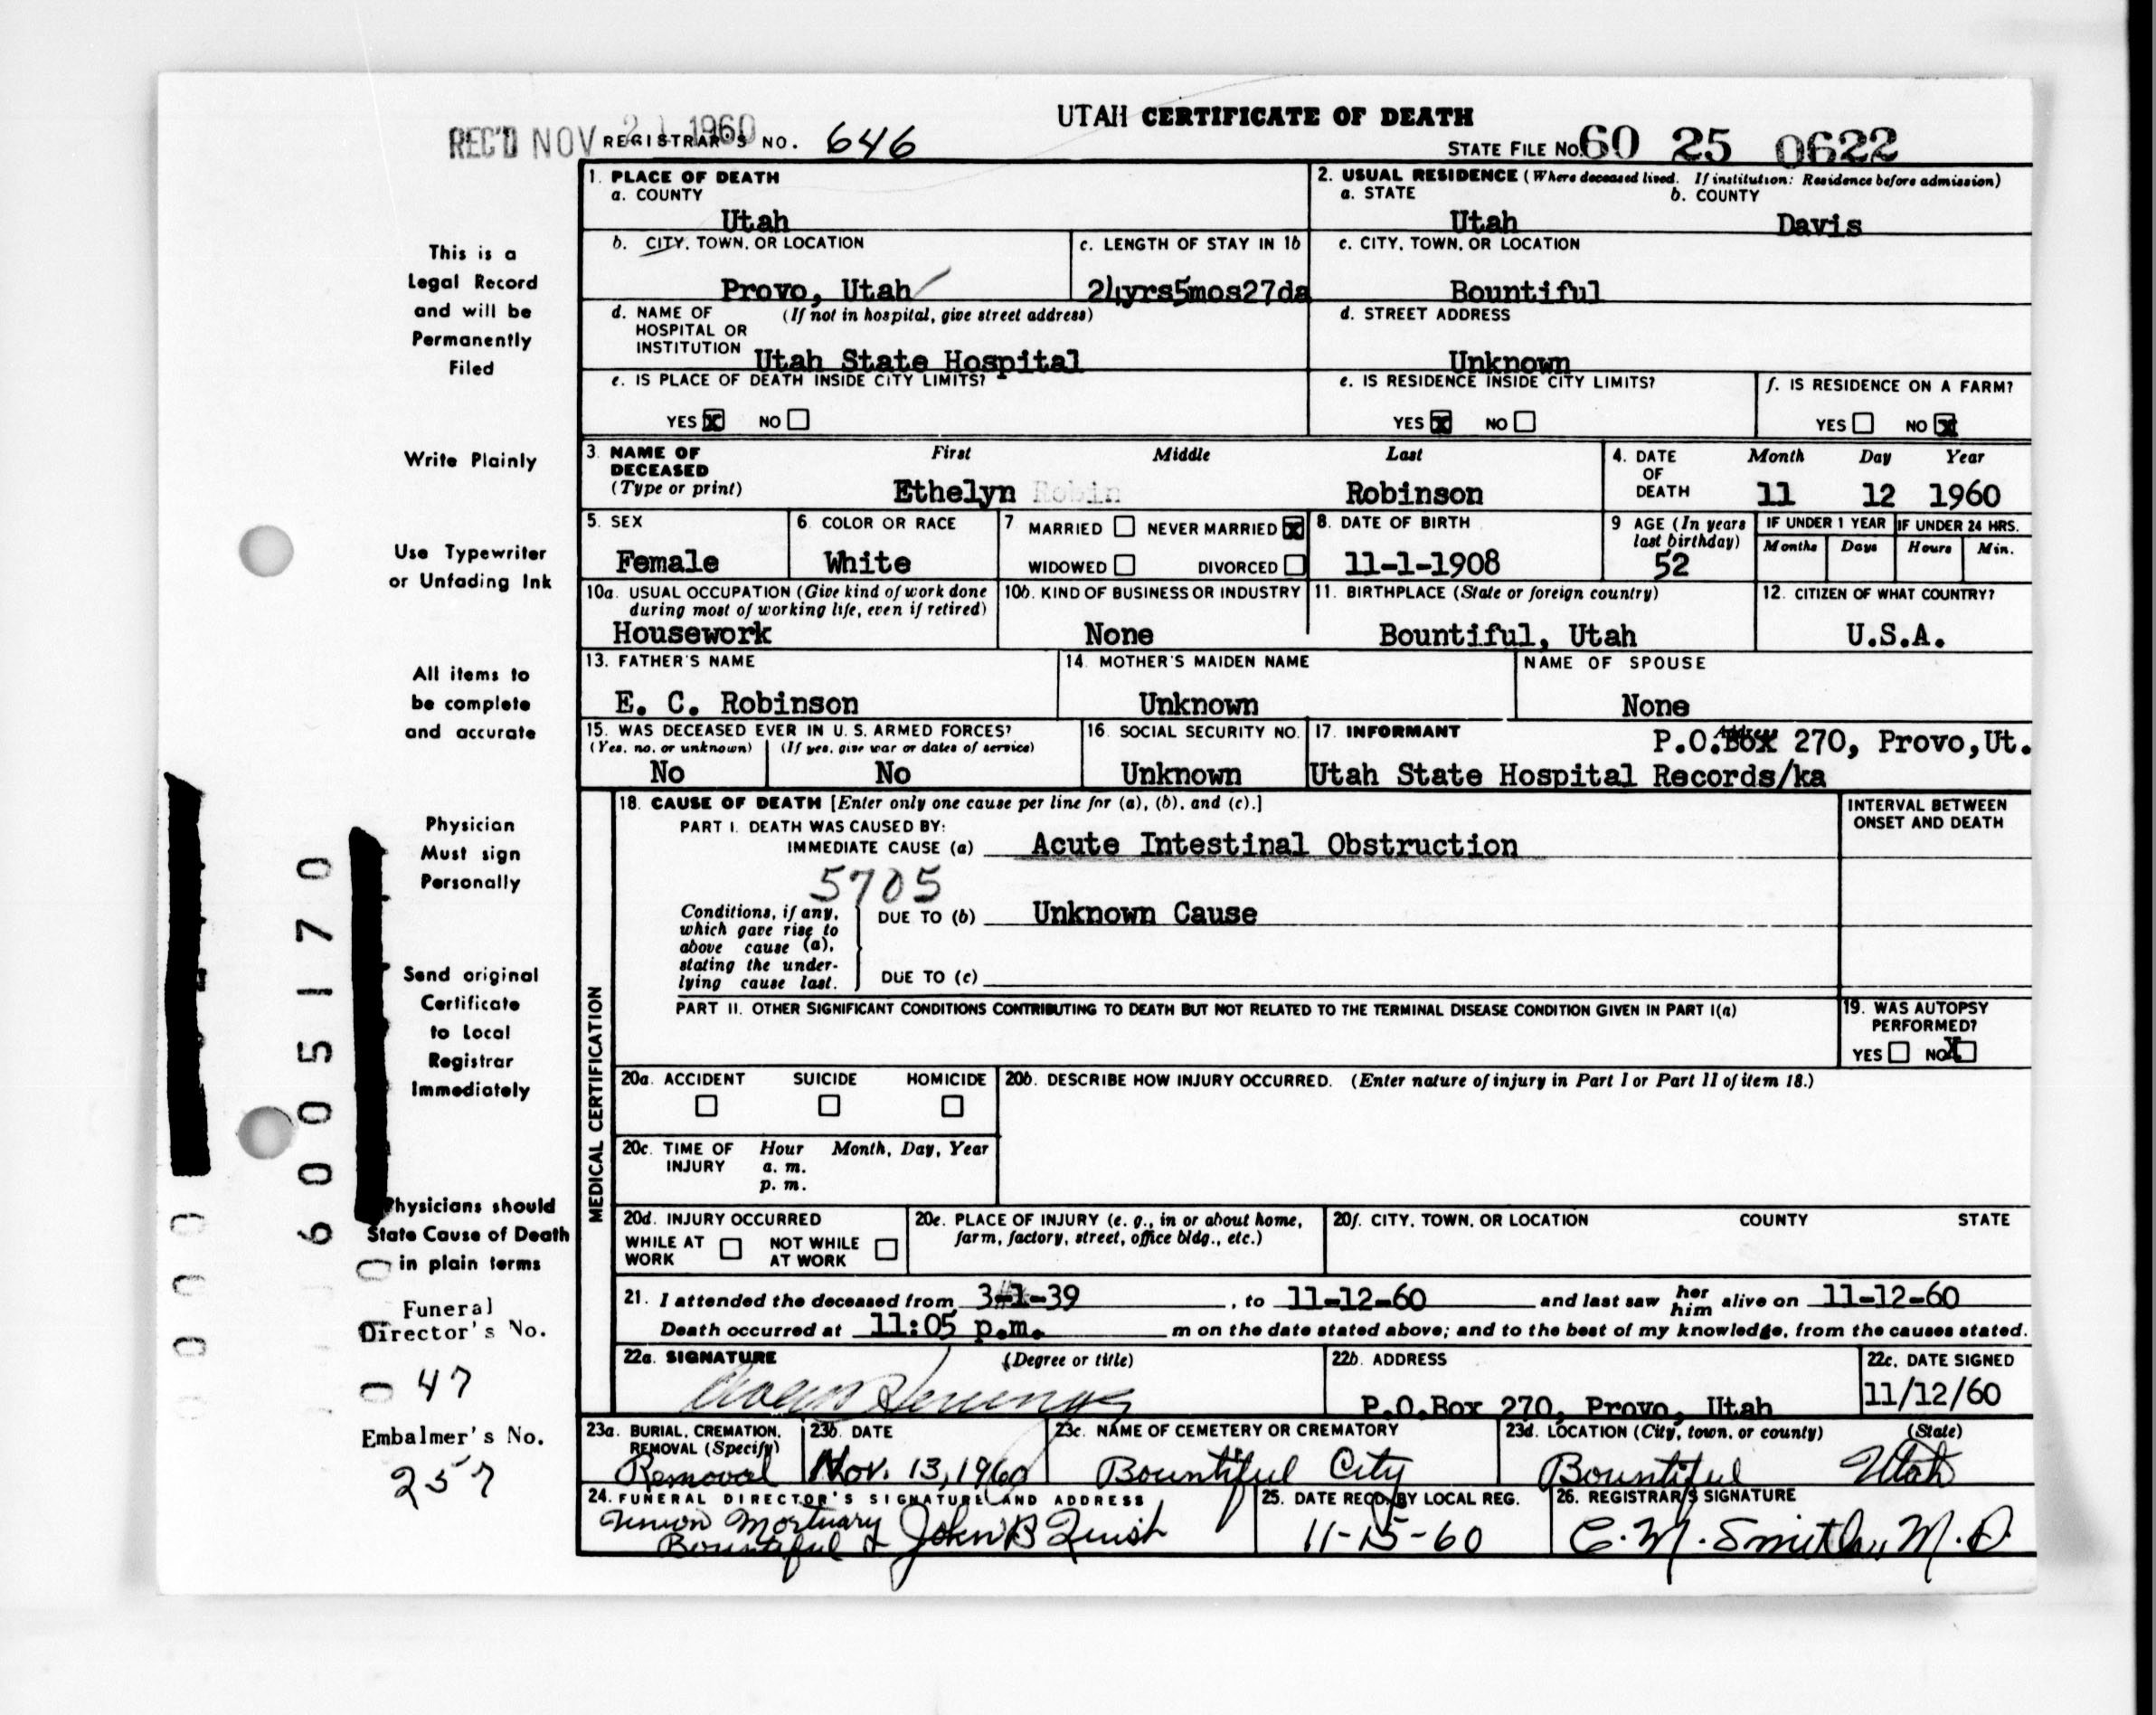 UTAH CERTIFICATE OF DEATH
REC'D NOV 21 1960 REGISTRAR'S NO. 646
STATE FILE NO. 60 25 0622
1. PLACE OF DEATH
a. COUNTY
Utah
2. USUAL RESIDENCE (Where deceased lived. If institution: Residence before admission)
a. STATE b. COUNTY
Utah Davis
b. CITY, TOWN, OR LOCATION
Provo, Utah
c. LENGTH OF STAY IN 1b
24yrs5mos27da
c. CITY, TOWN, OR LOCATION
Bountiful
d. NAME OF (If not in hospital, give street address)
HOSPITAL OR
INSTITUTION Utah State Hospital
d. STREET ADDRESS
Unknown
e. IS PLACE OF DEATH INSIDE CITY LIMITS?
YES X NO
e. IS RESIDENCE INSIDE CITY LIMITS?
YES X NO
f. IS RESIDENCE ON A FARM?
YES NO X
3. NAME OF DECEASED (Type or print)
First Middle Last
Ethelyn Robin Robinson
4. DATE OF DEATH
Month Day Year
11 12 1960
5. SEX
Female
6. COLOR OR RACE
White
7 MARRIED NEVER MARRIED X
WIDOWED DIVORCED
8. DATE OF BIRTH
11-1-1908
9 AGE (In years last birthday)
52
IF UNDER 1 YEAR IF UNDER 24 HRS.
Months Days Hours Min.
10a. USUAL OCCUPATION (Give kind of work done
during most of working life, even if retired)
Housework
10b. KIND OF BUSINESS OR INDUSTRY
None
11. BIRTHPLACE (State or foreign country)
Bountiful, Utah
12. CITIZEN OF WHAT COUNTRY?
U.S.A.
13. FATHER'S NAME
E. C. Robinson
14. MOTHER'S MAIDEN NAME
Unknown
NAME OF SPOUSE
None
15. WAS DECEASED EVER IN U. S. ARMED FORCES?
(Yes, no, or unknown) (If yes, give war or dates of service)
No No
16. SOCIAL SECURITY NO.
Unknown
17. INFORMANT Address
P.O.Box 270, Provo,Ut.
Utah State Hospital Records/ka
MEDICAL CERTIFICATION
18. CAUSE OF DEATH [Enter only one cause per line for (a), (b), and (c).]
INTERVAL BETWEEN
ONSET AND DEATH
PART I. DEATH WAS CAUSED BY:
IMMEDIATE CAUSE (a) Acute Intestinal Obstruction
5705
Conditions, if any,
which gave rise to
above cause (a),
stating the under-
lying cause last.
DUE TO (b) Unknown Cause
DUE TO (c)
PART II. OTHER SIGNIFICANT CONDITIONS CONTRIBUTING TO DEATH BUT NOT RELATED TO THE TERMINAL DISEASE CONDITION GIVEN IN PART I(a)
19. WAS AUTOPSY
PERFORMED?
YES NO X
20a. ACCIDENT SUICIDE HOMICIDE
20b. DESCRIBE HOW INJURY OCCURRED. (Enter nature of injury in Part I or Part II of item 18.)
20c. TIME OF INJURY Hour Month, Day, Year
a. m.
p. m.
20d. INJURY OCCURRED
WHILE AT WORK NOT WHILE AT WORK
20e. PLACE OF INJURY (e. g., in or about home,
farm, factory, street, office bldg., etc.)
20f. CITY, TOWN, OR LOCATION COUNTY STATE
21. I attended the deceased from 3-1-39, to 11-12-60 and last saw her him alive on 11-12-60
Death occurred at 11:05 p.m. m on the date stated above; and to the best of my knowledge, from the causes stated.
22a. SIGNATURE (Degree or title)
22b. ADDRESS
P.O.Box 270, Provo, Utah
22c. DATE SIGNED
11/12/60
23a. BURIAL, CREMATION,
REMOVAL (Specify)
Removal
23b. DATE
Nov. 13, 1960
23c. NAME OF CEMETERY OR CREMATORY
Bountiful City
23d. LOCATION (City, town, or county) (State)
Bountiful Utah
24. FUNERAL DIRECTOR'S SIGNATURE AND ADDRESS
Union Mortuary John B
Bountiful
25. DATE RECD. BY LOCAL REG.
11-15-60
26. REGISTRAR'S SIGNATURE
C. M. Smith, M.D.
This is a
Legal Record
and will be
Permanently
Filed
Write Plainly
Use Typewriter
or Unfading Ink
All items to
be complete
and accurate
Physician
Must sign
Personally
Send original
Certificate
to Local
Registrar
Immediately
Physicians should
State Cause of Death
in plain terms
Funeral
Director's No.
47
Embalmer's No.
257
6005170